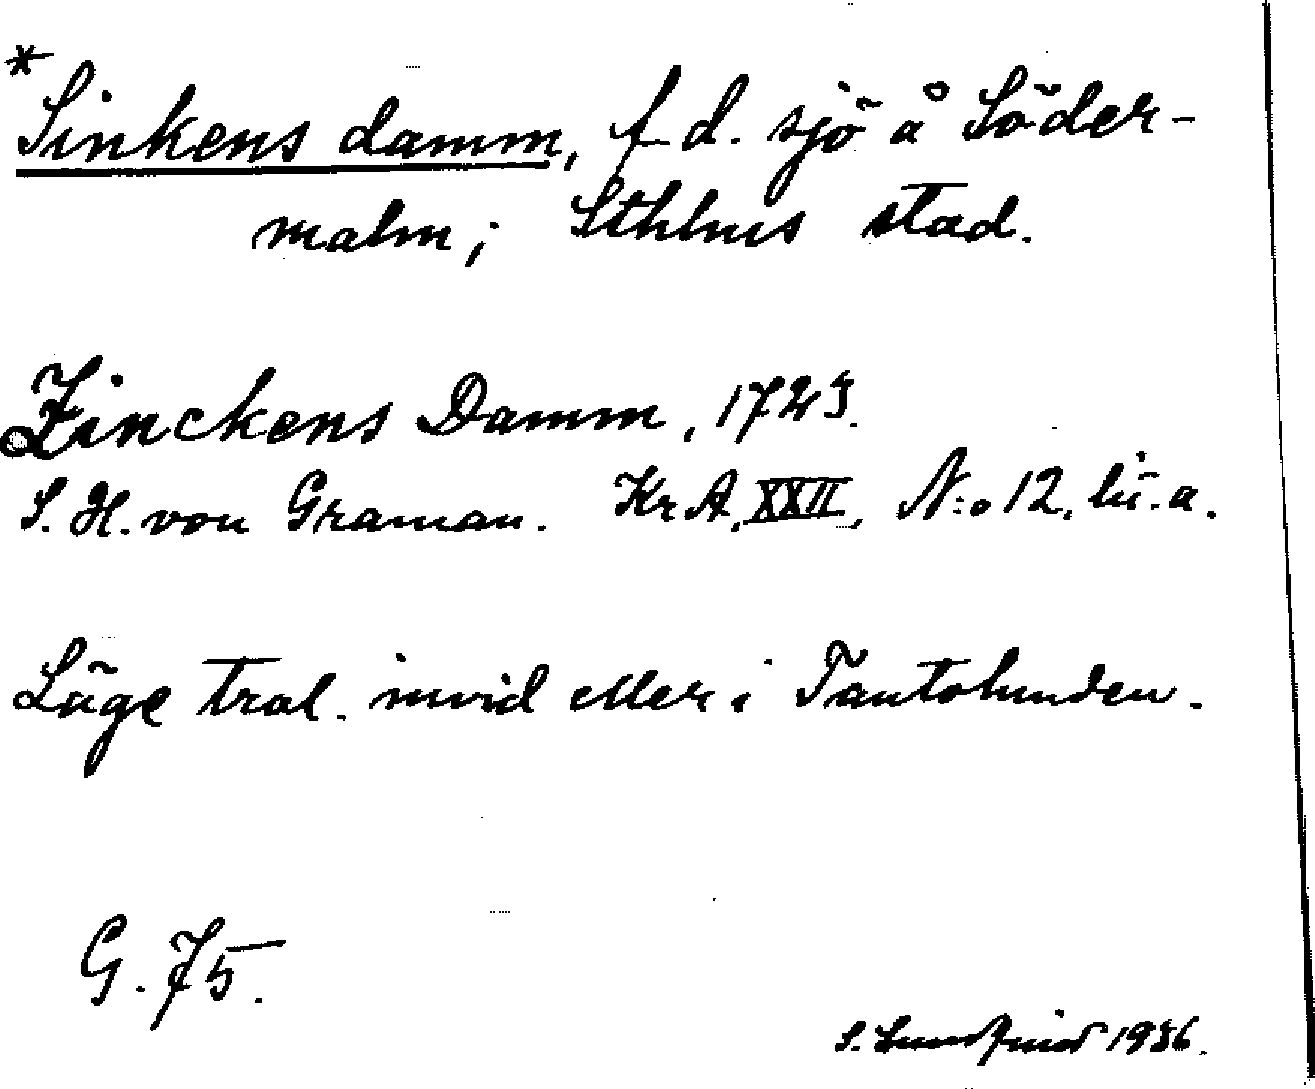 * Sinkens damm, f.d. sjö å Söder-
malm; Sthlms stad.
Zinckens Damm, 1723.
S. H. von Graman. KrA, XXII, N:o 12, lit. a.
Läge trol. invid eller i Tantolunden.
G. 75.
S. 1936.